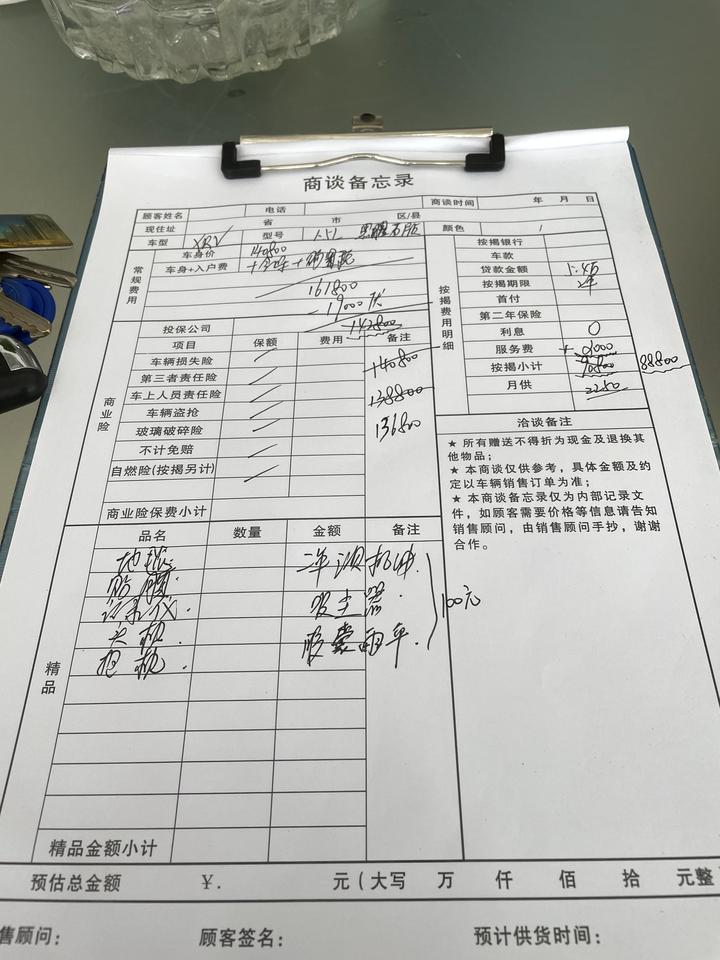 商谈备忘录
顾客姓名 电话 商谈时间 年 月 日
现住址 省 市 区/县
车型 XRV 型号 颜色
常规费用
车身价 140800
车身+入户费
161800
-19000
142800
投保公司
项目 保额 费用 备注
商业险
车辆损失险 140800
第三者责任险
车上人员责任险 138800
车辆盗抢 136800
玻璃破碎险
不计免赔
自燃险(按揭另计)
商业险保费小计
按揭费用明细
按揭银行
车款
贷款金额 5.45
按揭期限 2年
首付
第二年保险
利息 0
服务费 +2000
按揭小计 90800 88800
月供 2250
洽谈备注
★ 所有赠送不得折为现金及退换其
他物品；
★ 本商谈仅供参考，具体金额及约
定以车辆销售订单为准；
★ 本商谈备忘录仅为内部记录文
件，如顾客需要价格等信息请告知
销售顾问，由销售顾问手抄，谢谢
合作。
精品
品名 数量 金额 备注
地毯.
贴膜.
记录仪 吸尘器.
100元
精品金额小计
预估总金额 ￥. 元（大写 万 仟 佰 拾 元整
售顾问： 顾客签名： 预计供货时间：